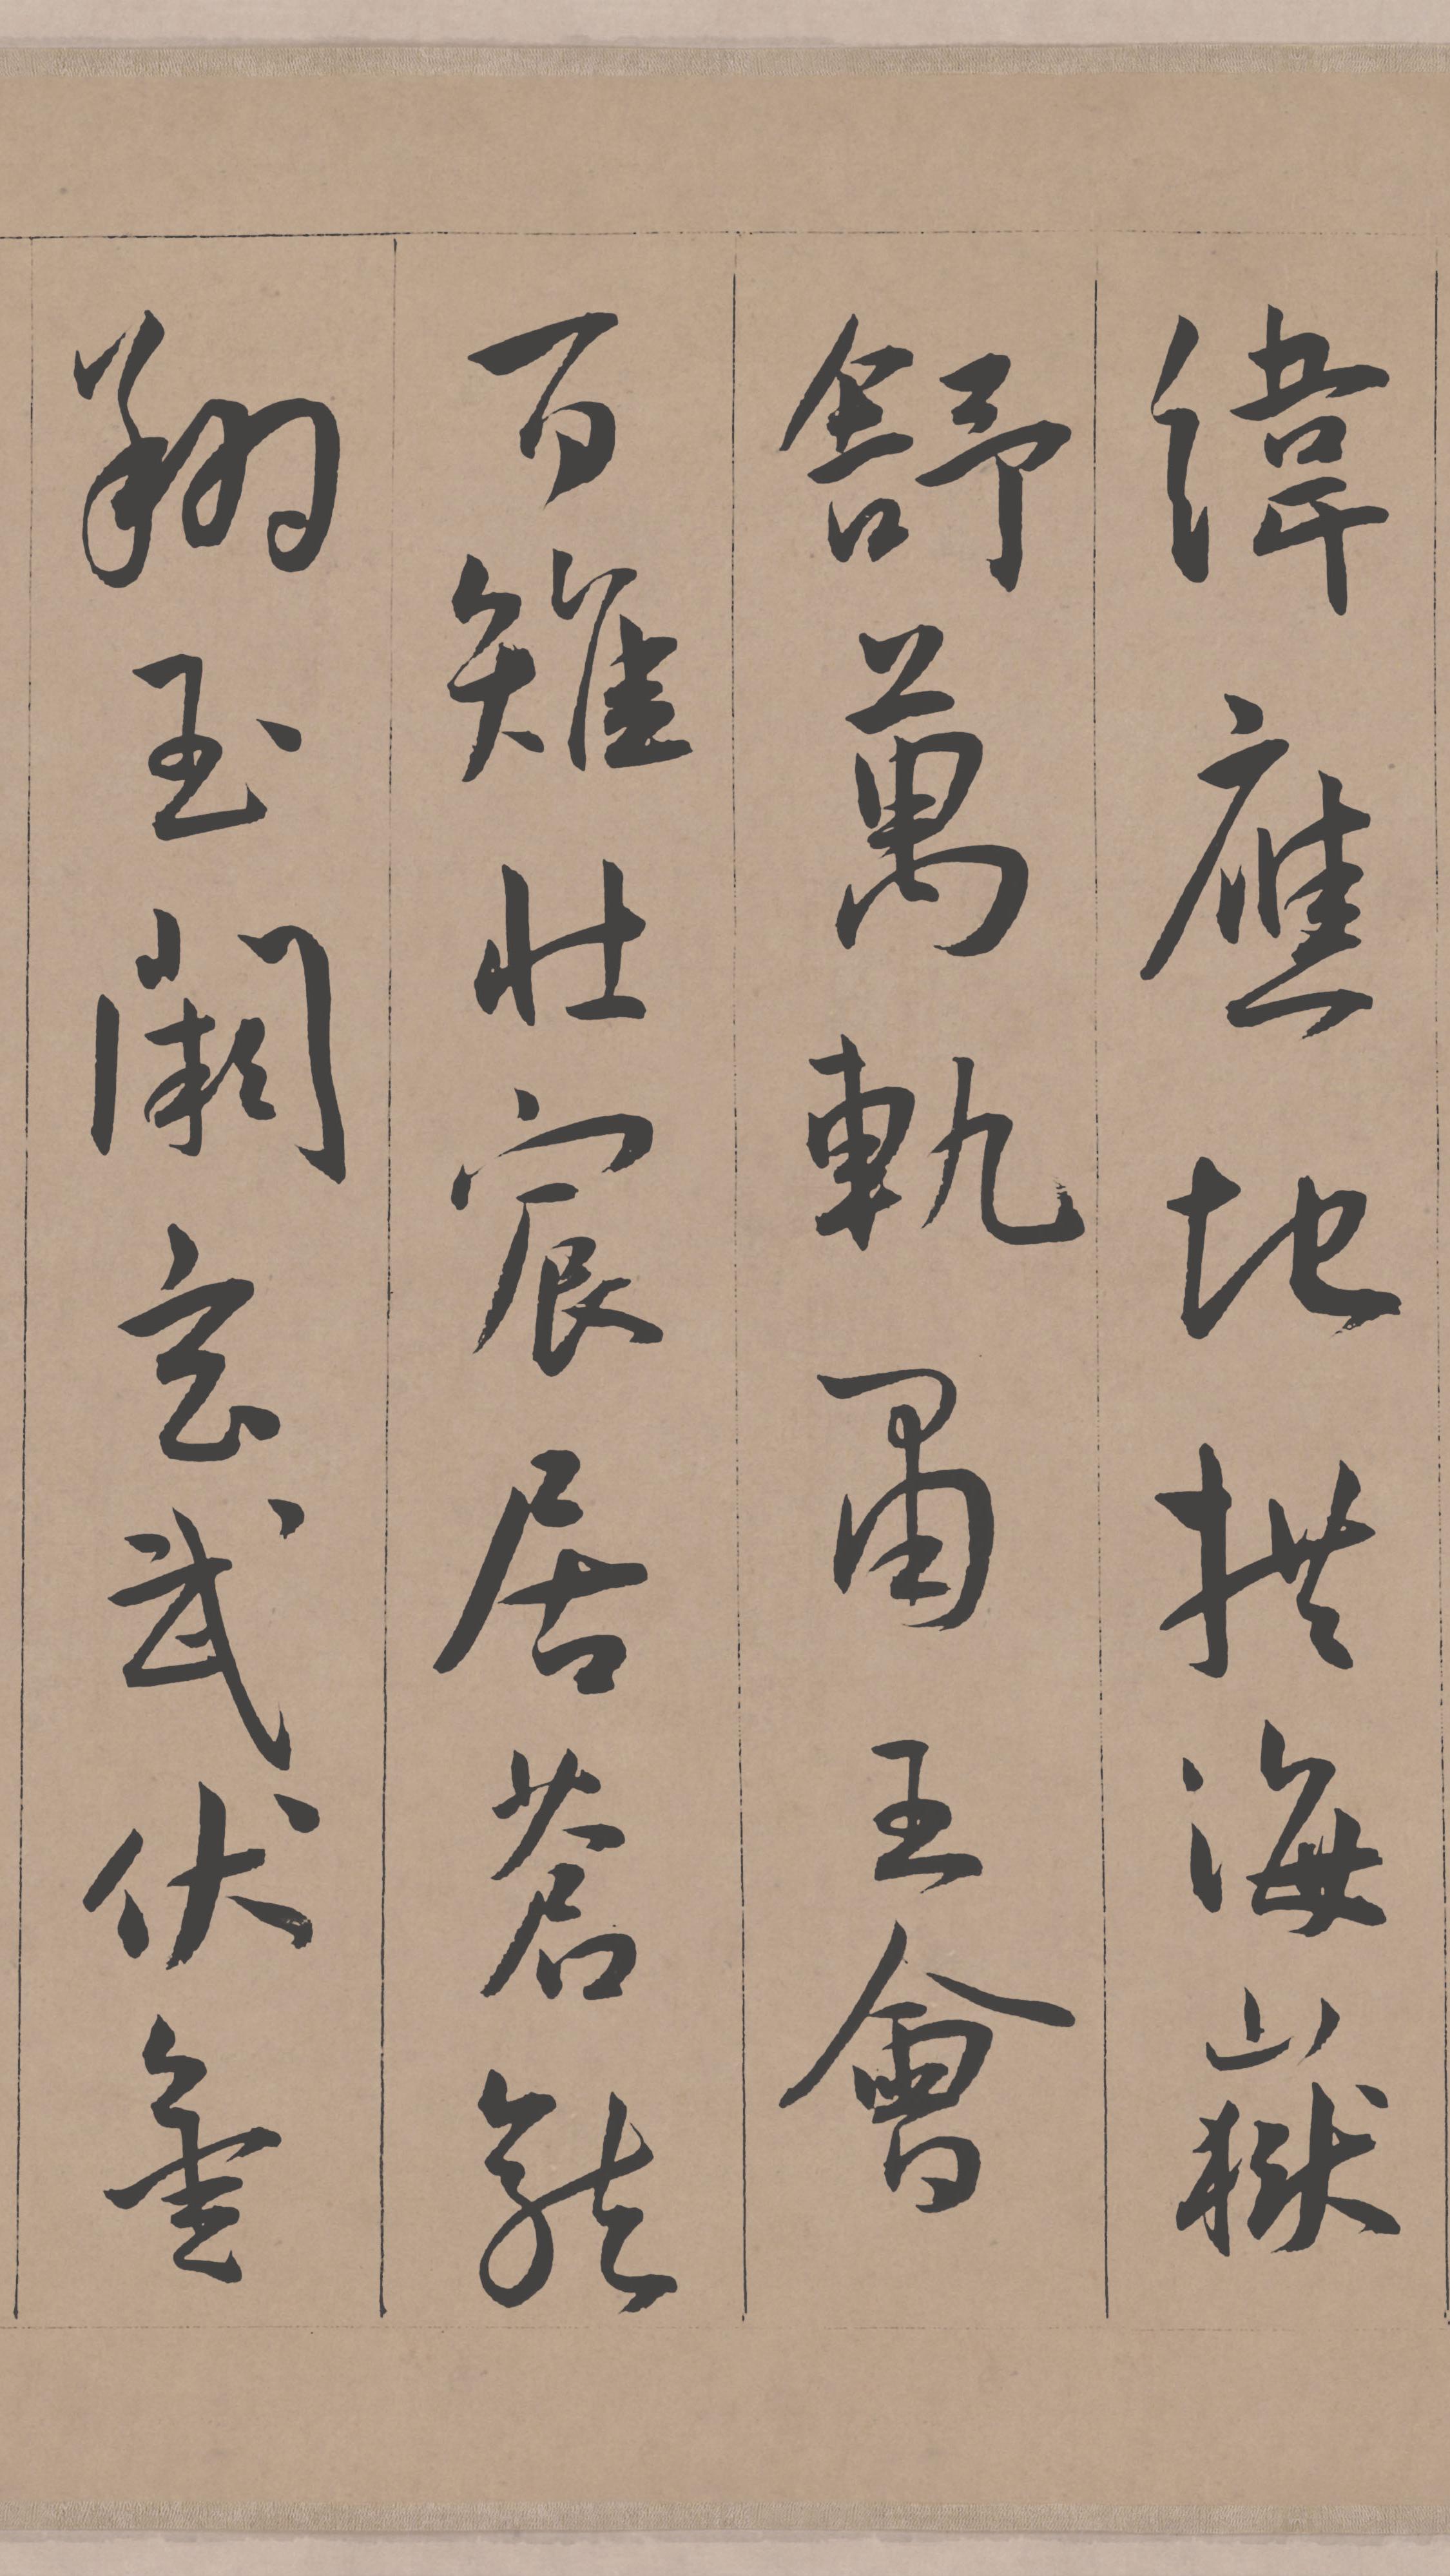 緯應地拱海嶽
舒萬軌肅王會
百雉壯宸居蒼龍
翔玉闕玄武伏金